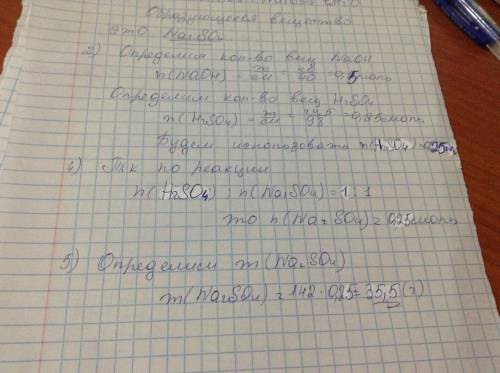 Образующееся вещество
это Na₂SO₄
2) Определим кол-во вещ NaOH
n(NaOH) = m/M = /40 = 0,5 моль
Определим кол-во вещ H₂SO₄
n(H₂SO₄) = m/M = /98 = моль
Будем использовать n(H₂SO₄)
4) Т.к по реакции
n(H₂SO₄) : n(Na₂SO₄) = 1 : 1
то n(Na₂SO₄) = 0,25 моль
5) Определим m(Na₂SO₄)
m(Na₂SO₄) = 142 · 0,25 = 35,5 (г)